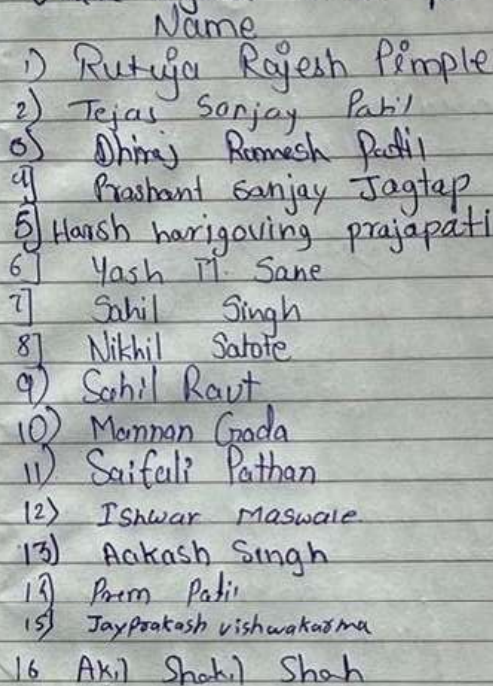 Name
1) Rutuja Rajesh Pimple
2) Tejas Sanjay Patil
3) Dhiraj Ramesh Patil
4] Prashant Sanjay Jagtap
5] Harsh harigoving prajapati
6] Yash M. Sane
7] Sahil Singh
8] Nikhil Satote
9) Sahil Raut
10) Mannan Gada
11) Saifali Pathan
12) Ishwar Maswale
13) Aakash Singh
14) Prem Patil
15) Jayprakash vishwakarma
16 Akil Shakil Shah